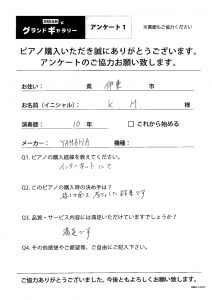 DREAM
グランドギャラリー
アンケート1
※裏面もご協力ください
ピアノ購入いただき誠にありがとうございます。
アンケートのご協力お願い致します。
お住い: 県 伊東 市
お名前(イニシャル): K. M. 様
演奏歴: 10 年 □これから始める
メーカー: YAMAHA 機種:
Q1. ピアノ購入経緯を教えてください。
インターネットにて
Q2. このピアノの購入時の決め手は?
Q3. 品質・サービス内容には満足いただけていますでしょうか?
満足です
Q4. その他感想やご要望等、ご自由にご記入下さい。
ご協力ありがとうございました。今後ともよろしくお願い致します。